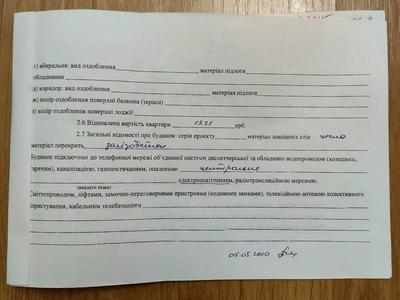 г) вбиральня: вид оздоблення матеріал підлоги
обладнання
д) коридор: вид оздоблення матеріал підлоги
ж) колір оздоблення поверхні балкона (тераси)
колір оздоблення поверхні лоджії
2.6 Відновлена вартість квартири 1321 крб.
2.7 Загальні відомості про будинок: серія проекту матеріал зовнішніх стін
матеріал перекрить залізобетон
Будинок підключено до телефонної мережі об'єднаної системи диспетчерської та обладнано водопроводом (холодним,
гарячим), каналізацією, газопостачанням, опаленням центральне
(вказати яким) електроосвітленням, радіотрансляційною мережею,
Сміттєпроводом, ліфтами, замочно-переговорними пристроями (кодовими замками), телевізійною антеною колективного
користування, кабельним телебаченням
05.05.2010